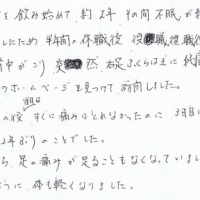 を飲み始めて 約2年 その間不眠が
したため 半年間の休職後 復職後
背中がこり 突然 右足ふくらはぎに
のホームページを見つけて訪問しました。
の後 すぐに痛みはとれなかったのに 3回目
2年ぶりのことでした。
ら、足の痛みが足ることもなくなっていまし
うに 体も軽くなりました。